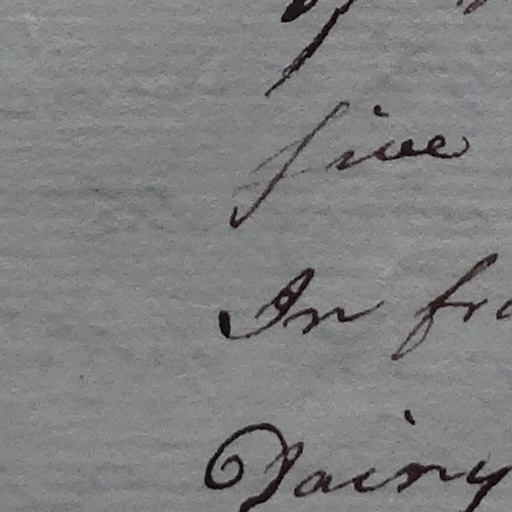 five
In fro
Dairy